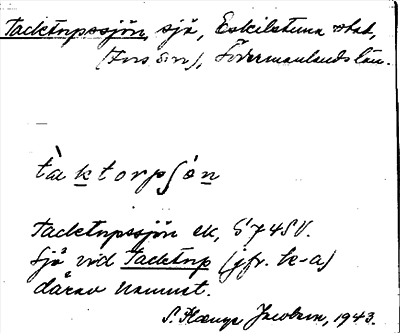 Tacktorpssjön, sjö, Eskilstuna stad,
(Fors sn), Södermanlands län.
tàktorpʃö́n
Tacktorpssjön ek, S 74 SV.
Sjö vid Tacktorp (jfr. k-a)
därav namnet.
S. Jacobson, 1943.